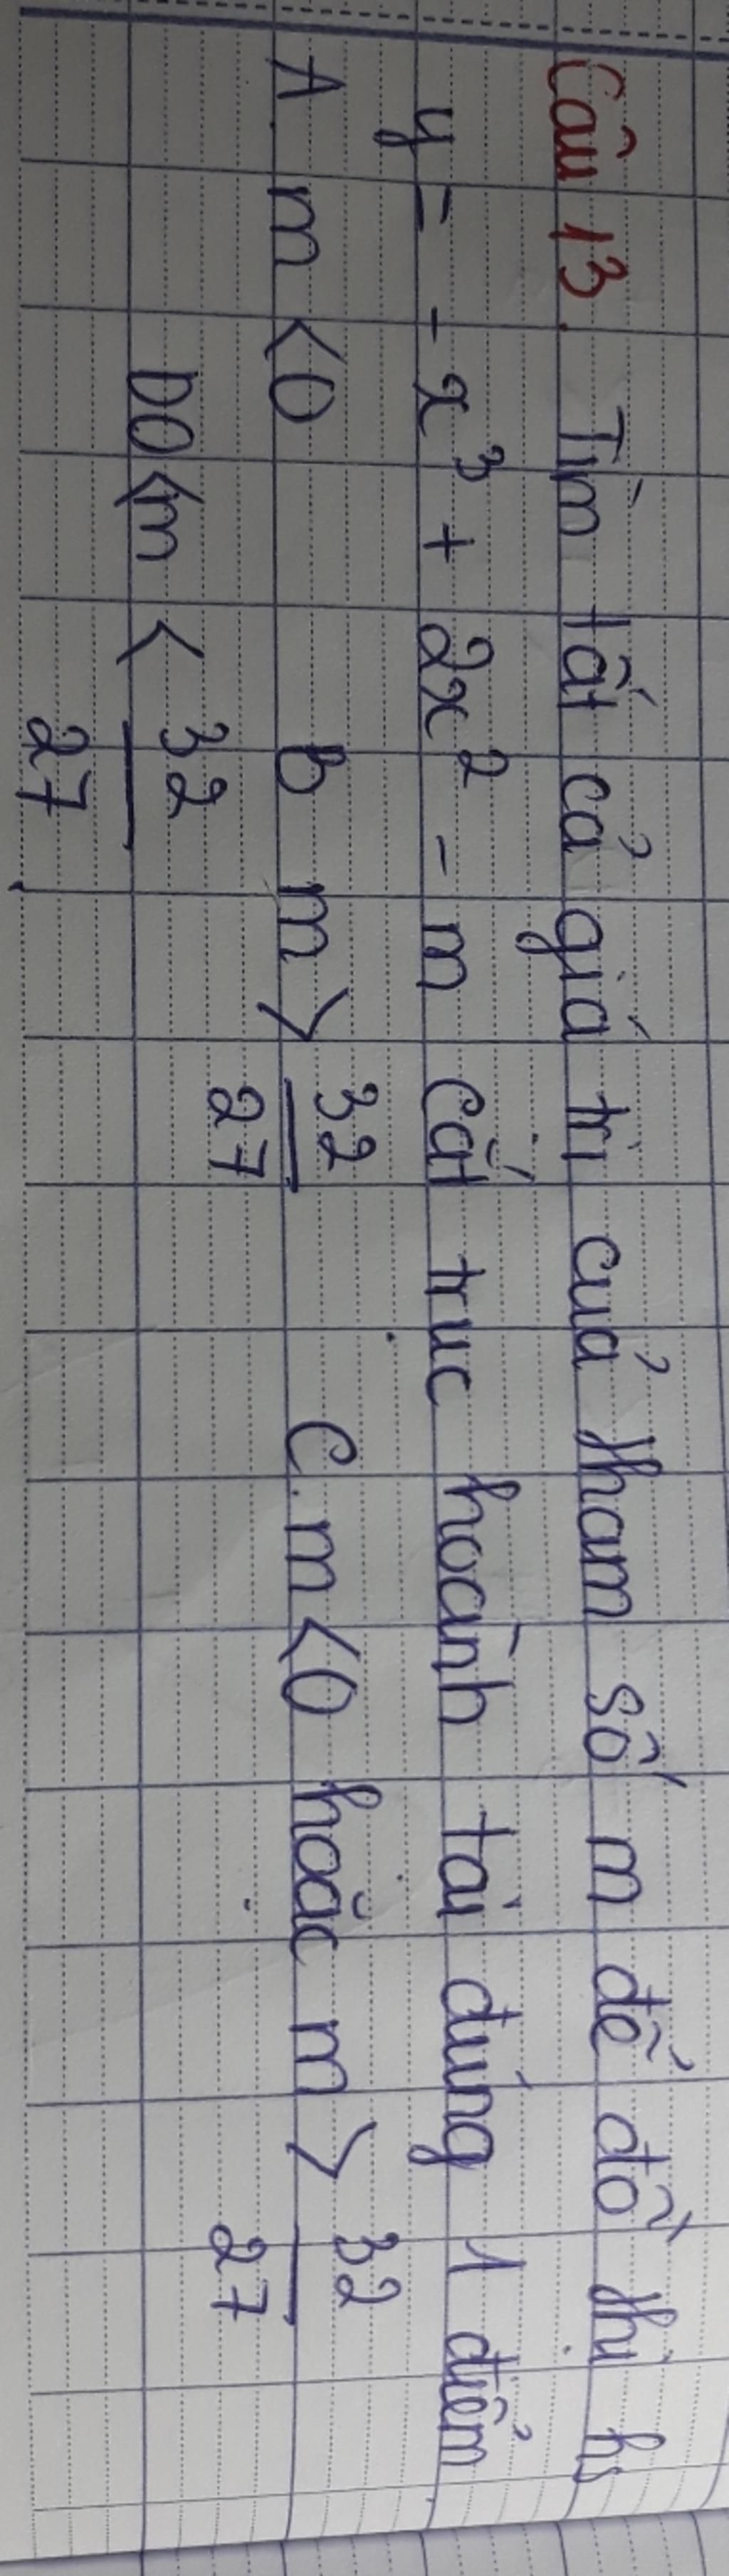 Câu 13. Tìm tất cả giá trị của tham số m để đồ thị hs
y = -x³ + 2x² - m cắt trục hoành tại đúng 1 điểm
A. m < 0 b m > 32/27 C. m < 0 hoặc m > 32/27
D 0 < m < 32/27